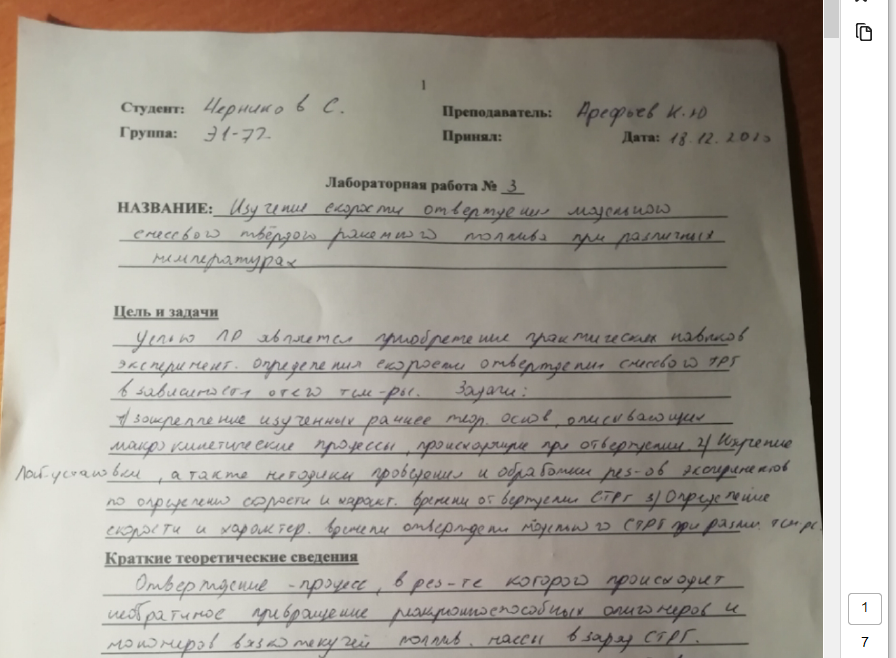 1
Студент: Черников С. Преподаватель: Арефьев К.Ю
Группа: Э1-72 Принял: Дата: 18.12.2010
Лабораторная работа № 3
НАЗВАНИЕ: Изучение скорости отверждения модельного
смесевого твёрдого ракетного топлива при различных
температурах
Цель и задачи
Целью ЛР является приобретение практических навыков
эксперимент. определения скорости отверждения смесевого ТРТ
в зависимости от его тем-ры. Задачи:
1) закрепление изученных раннее теор. основ, описывающих
макрокинетические процессы, происходящие при отверждении 2) Изучение
Лаб. установки, а также методики проведения и обработки рез-ов экспериментов
по определению скорости и характ. времени отверждения СТРТ 3) Определение
скорости и характер. времени отверждения модельного СТРТ при разли. тем-рах
Краткие теоретические сведения
Отверждение - процесс, в рез-те которого происходит
необратимое превращение реакционноспособных олигомеров и
мономеров вязкотекучей топлив. массы в заряд СТРТ.
1
7